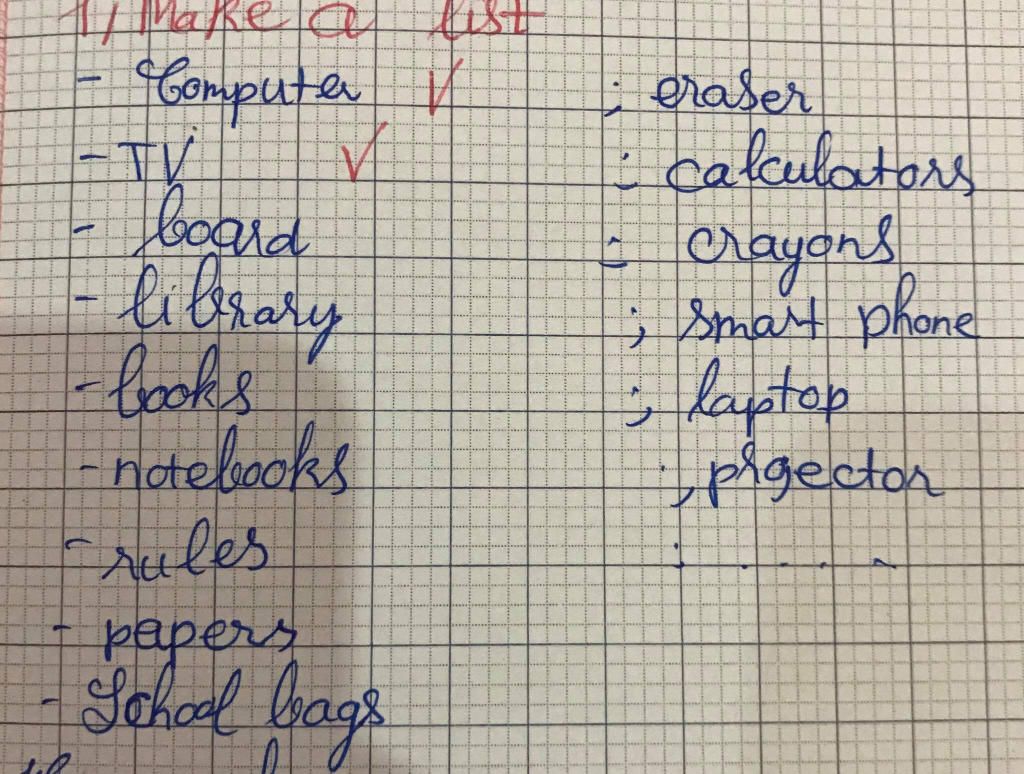 1, Make a list
- Computer ✓
- TV ✓
- board
- library
- books
- notebooks
- rules
- papers
- School bags
; eraser
: calculators
: crayons
; smart phone
; laptop
; prgector
: . . . .